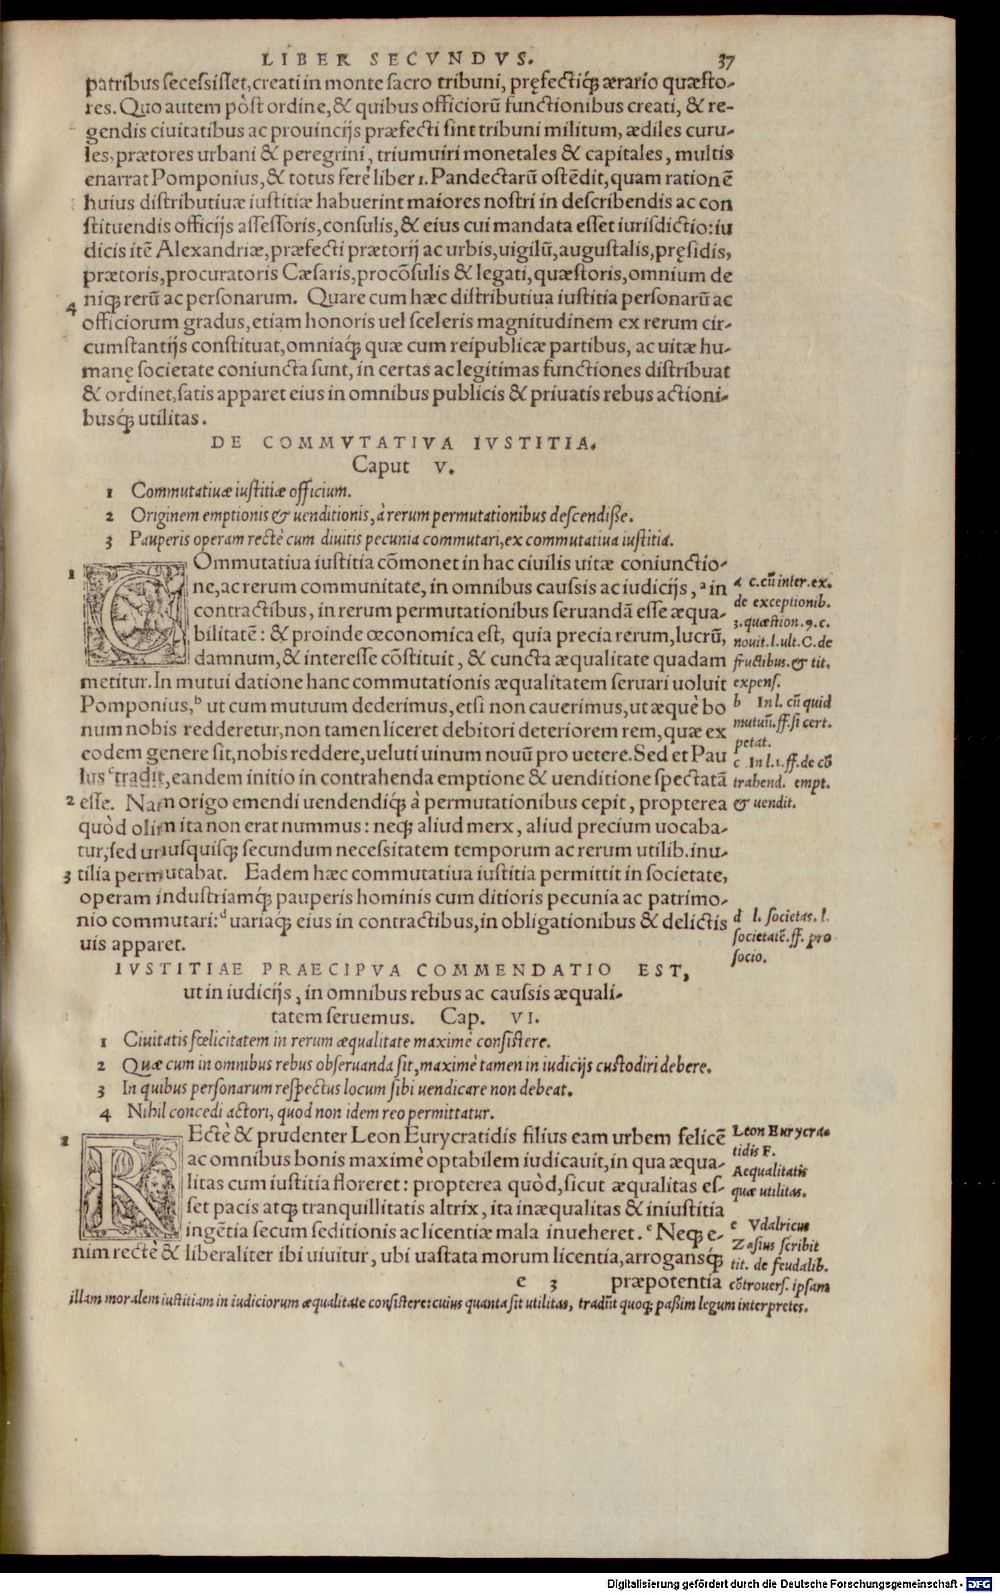 LIBER SECVNDVS. 37
patribus secessisset, creati in monte sacro tribuni, pręfectiq́; ærario quæsto-
res. Quo autem pòst ordine, & quibus officiorũ functionibus creati, & re-
gendis ciuitatibus ac prouincijs præfecti sint tribuni militum, ædiles curu-
les, prætores urbani & peregrini, triumuiri monetales & capitales, multis
enarrat Pomponius, & totus ferè liber 1. Pandectarũ ostẽdit, quam rationẽ
huius distributiuæ iustitiæ habuerint maiores nostri in describendis ac con
stituendis officijs assessoris, consulis, & eius cui mandata esset iurisdictio: iu
dicis itẽ Alexandriæ, præfecti prætorij ac urbis, uigilũ, augustalis, pręsidis,
prætoris, procuratoris Cæsaris, procõsulis & legati, quæstoris, omnium de
niq; rerũ ac personarum. Quare cum hæc distributiua iustitia personarũ ac
4 officiorum gradus, etiam honoris uel sceleris magnitudinem ex rerum cir-
cumstantijs constituat, omniaq́; quæ cum reipublicæ partibus, ac uitæ hu-
manę societate coniuncta sunt, in certas ac legitimas functiones distribuat
& ordinet, satis apparet eius in omnibus publicis & priuatis rebus actioni-
busq́; utilitas.
DE COMMVTATIVA IVSTITIA.
Caput V.
1 Commutatiuæ iustitiæ officium.
2 Originem emptionis & uenditionis, à rerum permutationibus descendisse.
3 Pauperis operam rectè cum diuitis pecunia commutari, ex commutatiua iustitia.
1 COmmutatiua iustitia cõmonet in hac ciuilis uitæ coniunctio-
ne, ac rerum communitate, in omnibus caussis ac iudicijs, ᵃ in
contractibus, in rerum permutationibus seruandã esse æqua-
bilitatẽ: & proinde œconomica est, quia precia rerum, lucrũ,
damnum, & interesse cõstituit, & cuncta æqualitate quadam
metitur. In mutui datione hanc commutationis æqualitatem seruari uoluit
Pomponius, ᵇ ut cum mutuum dederimus, etsi non cauerimus, ut æquè bo
num nobis redderetur, non tamen liceret debitori deteriorem rem, quæ ex
eodem genere sit, nobis reddere, ueluti uinum nouũ pro uetere. Sed et Pau
lus ᶜ tradit, eandem initio in contrahenda emptione & uenditione spectatã
2 esse. Nam origo emendi uendendiq́; à permutationibus cepit, propterea
quòd olim ita non erat nummus: neq; aliud merx, aliud precium uocaba-
tur, sed unusquisq; secundum necessitatem temporum ac rerum utilib. inu-
3 tilia permutabat. Eadem hæc commutatiua iustitia permittit in societate,
operam industriamq́; pauperis hominis cum ditioris pecunia ac patrimo-
nio commutari: ᵈ uariaq́; eius in contractibus, in obligationibus & delictis
uis apparet.
a c. cũ inter. ex.
de exceptionib.
3. quæstion. 9. c.
nouit. l. ult. C. de
fructibus. & tit.
expens.
b In l. cũ quid
mutuũ. ff. si cert.
petat.
c In l. 1. ff. de cõ
trahend. empt.
& uendit.
d l. societas. l.
societatẽ. ff. pro
socio.
IVSTITIAE PRAECIPVA COMMENDATIO EST,
ut in iudicijs, in omnibus rebus ac caussis æquali-
tatem seruemus. Cap. VI.
1 Ciuitatis fœlicitatem in rerum æqualitate maximè consistere.
2 Quæ cum in omnibus rebus obseruanda sit, maximè tamen in iudicijs custodiri debere.
3 In quibus personarum respectus locum sibi uendicare non debeat.
4 Nihil concedi actori, quod non idem reo permittatur.
1 REctè & prudenter Leon Eurycratidis filius eam urbem felicẽ
ac omnibus bonis maximè optabilem iudicauit, in qua æqua-
litas cum iustitia floreret: propterea quòd, sicut æqualitas es-
set pacis atq; tranquillitatis altrix, ita inæqualitas & iniustitia
ingẽtia secum seditionis ac licentiæ mala inueheret. ᵉ Neq; e-
nim rectè & liberaliter ibi uiuitur, ubi uastata morum licentia, arrogansq́;
e 3 præpotentia
Leon Eurycra-
tidis F.
Aequalitatis
quæ utilitas.
e Vdalricus
Zasius scribit
tit. de feudalib.
cõtrouers. ipsam
illam moralem iustitiam in iudiciorum æqualitate consistere: cuius quanta sit utilitas, tradũt quoq; passim legum interpretes.
Digitalisierung gefördert durch die Deutsche Forschungsgemeinschaft - DFG